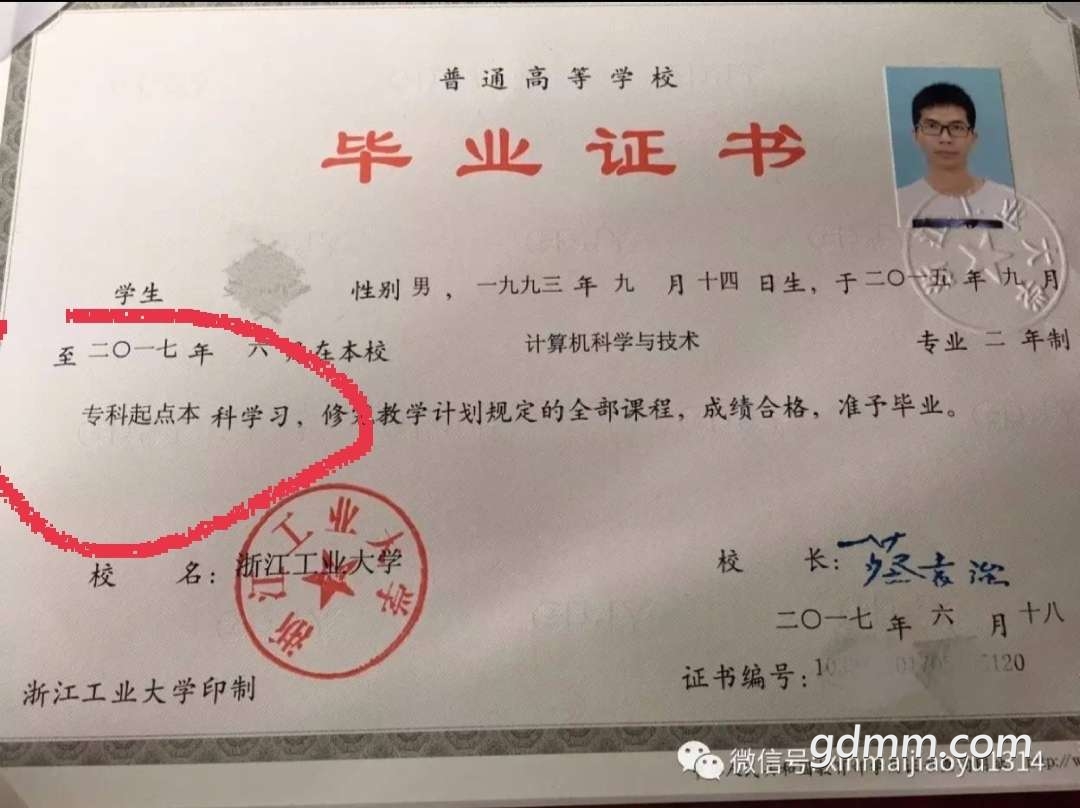 普通高等学校
毕业证书
学生 性别 男，一九九三年九月十四日生，于二〇一五年九月
至二〇一七年六 在本校 计算机科学与技术 专业 二 年制
专科起点本科学习，修 教学计划规定的全部课程，成绩合格，准予毕业。
浙江工业大学
校 名：浙江工业大学
校 长：
二〇一七年六月十八
浙江工业大学印制
证书编号： 120
gdmm.com
微信号: xinmaijiaoyu1314